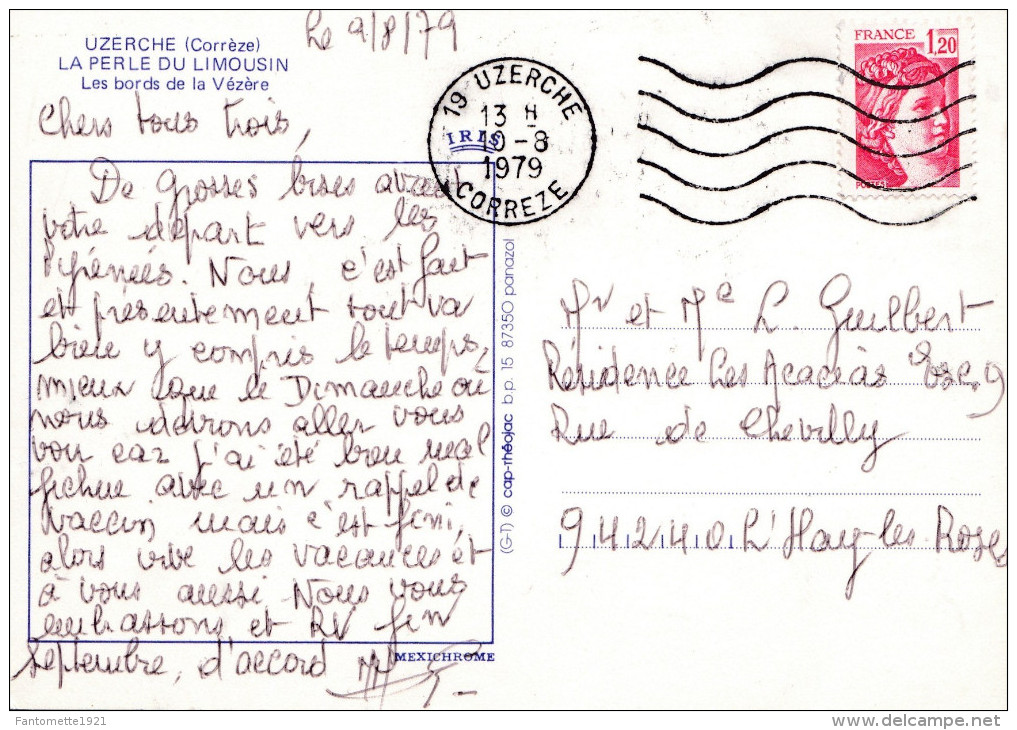 UZERCHE (Corrèze)
LA PERLE DU LIMOUSIN
Les bords de la Vézère
Le 9/8/79
19 UZERCHE
13 H
10-8
1979
CORREZE
IRIS
FRANCE 1,20
POSTES
Chers tous trois,
De grosses bises avant
votre départ vers les
Pyrénées. Nous, c'est fait
et présentement tout va
bien y compris le temps,
mieux que le Dimanche où
nous devions aller vous
voir car j'ai été bien mal
fichue avec un rappel de
vaccin mais c'est fini,
alors vive les vacances et
à vous aussi. Nous vous
embrassons et RV fin
Septembre, d'accord
MEXICHROME
(G-T) © cap-théojac b.p. 15 87350 panazol
Mr et Me L. Guilbert
Résidence Les Acacias Esc. 9
Rue de Chevilly
94240 L'Hay les Roses
Fantomette1921
delcampe.net